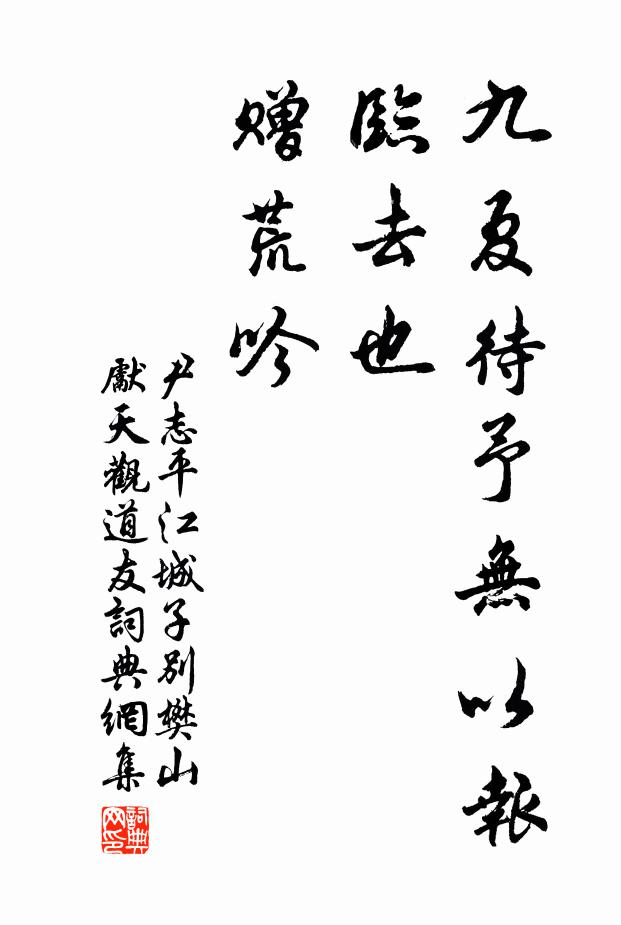 九夏待予無以報
臨去也
贈荒吟
尹志平江城子別樊山
獻天觀道友詞典網集
詞典网印